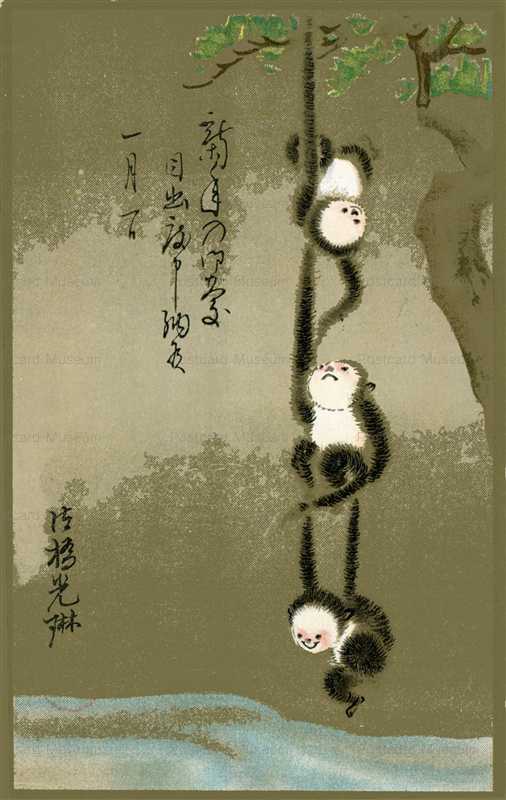 新年の御慶
目出度申納候
一月一日
法橋光琳
Postcard Museum